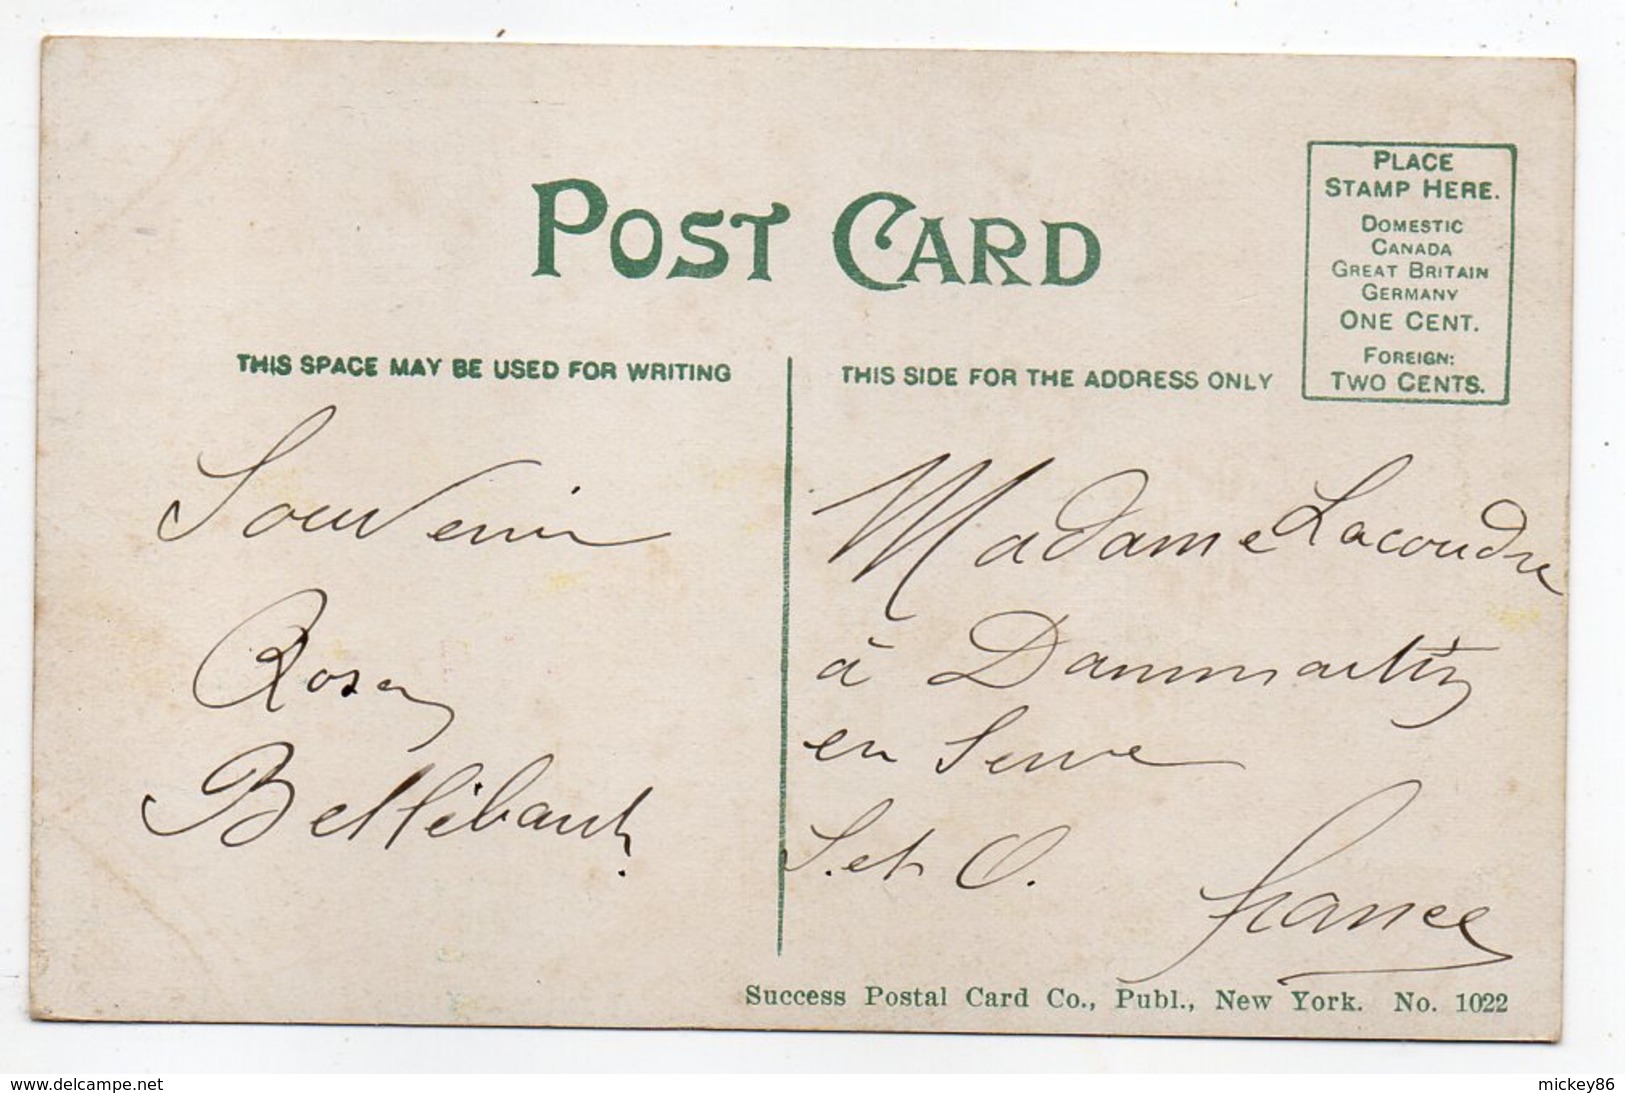 POST CARD
PLACE
STAMP HERE.
DOMESTIC
CANADA
GREAT BRITAIN
GERMANY
ONE CENT.
FOREIGN:
TWO CENTS.
THIS SPACE MAY BE USED FOR WRITING
THIS SIDE FOR THE ADDRESS ONLY
Souvenir
Rosa
Bellébault.
Madame Lacoudre
à Dammartin
en Serve
S. et O.
France
Success Postal Card Co., Publ., New York. No. 1022
www.delcampe.net
mickey86